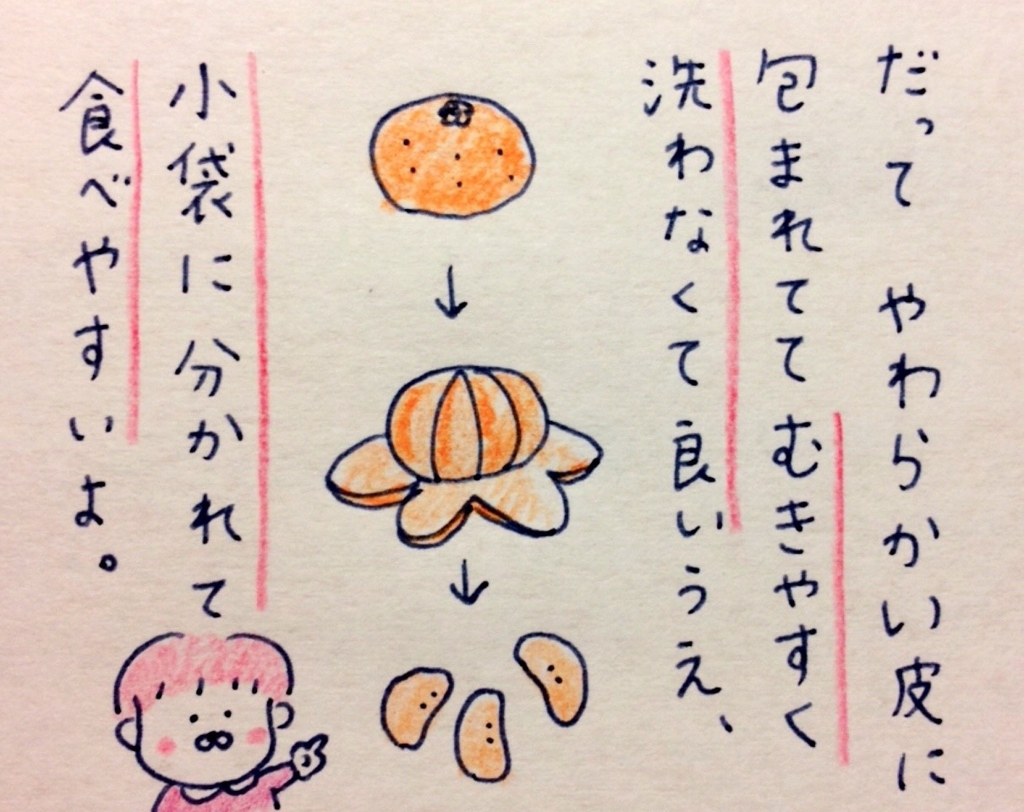 だって やわらかい皮に
包まれてて むきやすく
洗わなくて良いうえ、
小袋に分かれて
食べやすいよ。